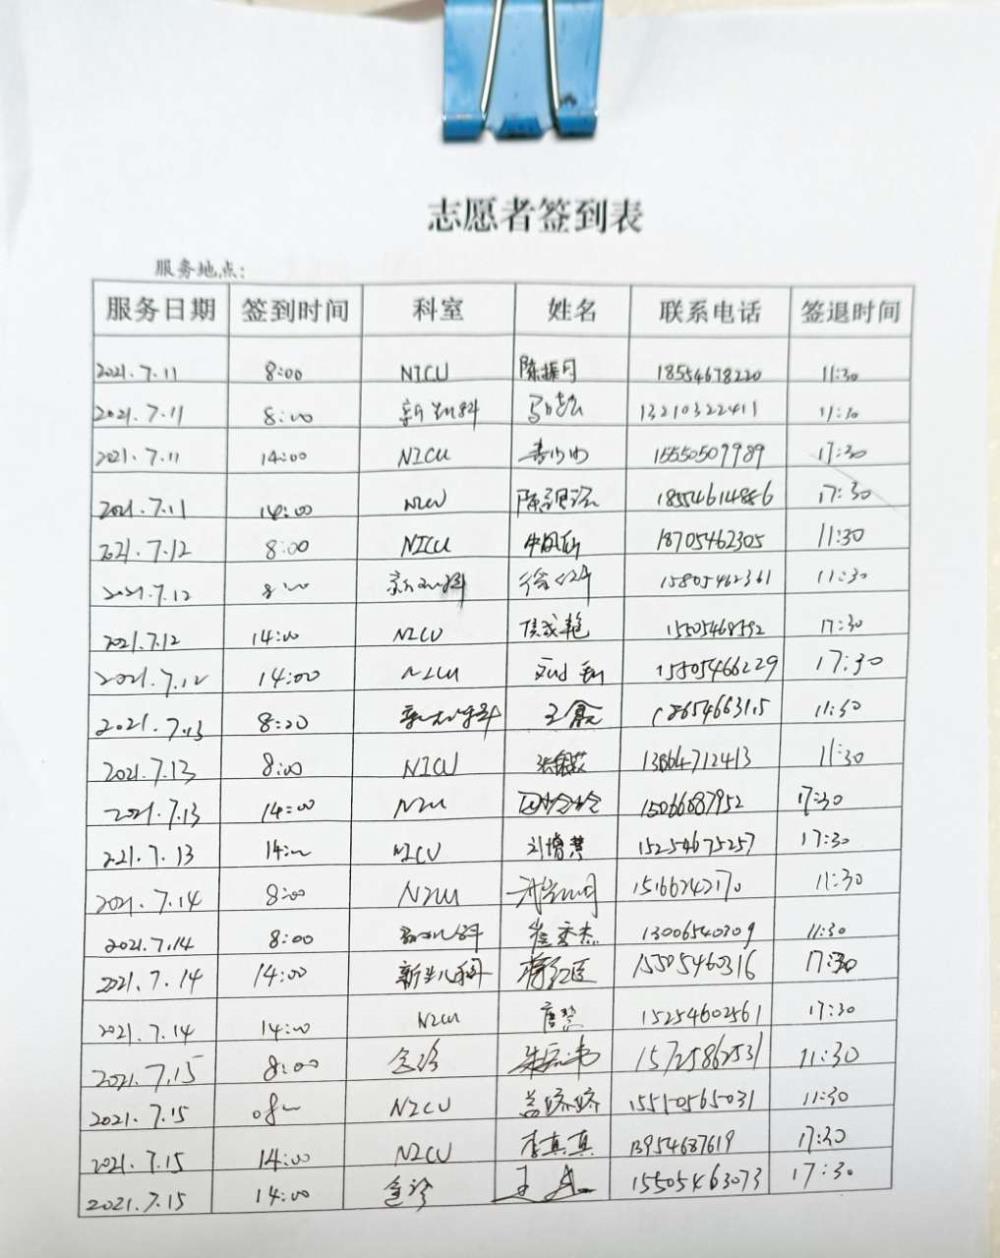 志愿者签到表
服务地点:
服务日期 签到时间 科室 姓名 联系电话 签退时间
2021.7.11 8:00 NICU 陈振月 18554678220 11:30
2021.7.11 8:00 新生儿科 13210322411 11:30
2021.7.11 14:00 NICU 15550507989 17:30
2021.7.11 14:00 NICU 18554614886 17:30
2021.7.12 8:00 NICU 18705462305 11:30
2021.7.12 8:00 新生儿科 15805462361 11:30
2021.7.12 14:00 NICU 侯成艳 17:30
2021.7.12 14:00 NICU 15505466229 17:30
2021.7.13 8:20 新生儿科 王鑫 11:30
2021.7.13 8:00 NICU 13864712413 11:30
2021.7.13 14:00 NICU 田玲玲 15066887952 17:30
2021.7.13 14:00 NICU 刘增慧 15254675257 17:30
2021.7.14 8:00 NICU 15166242170 11:30
2021.7.14 8:00 新生儿科 崔变杰 13006540309 11:30
2021.7.14 14:00 新生儿科 蒋红医 15505460316 17:30
2021.7.14 14:00 NICU 唐慧 15254602561 17:30
2021.7.15 8:00 15725862531 11:30
2021.7.15 NICU 盖娇娇 15510565031 11:30
2021.7.15 14:00 NICU 李真真 13954687619 17:30
2021.7.15 14:00 15505463073 17:30